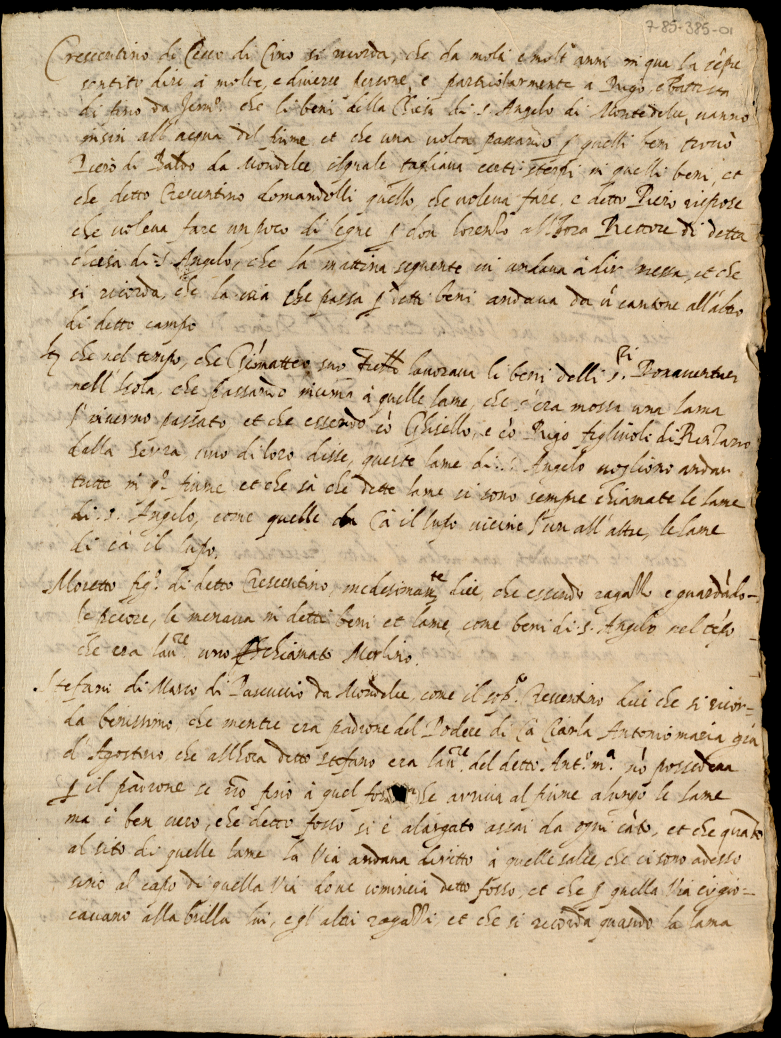 7-85-385-01
Crescentino di Cecco di Cino si ricorda, che da molti e molt' anni in qua ha sempre
sentito dire à molte, e diverse persone, e particolarmente a Rigo, e
di tino da che li beni della Chiesa di S. Angelo di Montedelce, vanno
insin all' acqua del fiume et che una volta passando p quelli beni trovò
Piero di Baldo da Mondelce ilquale tagliava certi sterpi in quelli beni, et
che detto Crescentino domandolli quello che voleva fare, e detto Piero rispose
che voleva fare un poco di legne p don lorenzo all'hora Rettore di detta
chiesa di S. Angelo, che la mattina seguente vi andava à dir messa, et che
si ricorda, che la via che passa p detti beni andava da ũ cantone all'altro
di detto campo
It che nel tempo, che Giõmatteo suo frałło lavorava li beni delli s.ri Bonaventuri
nell' Isola, che passando incima à quelle lame, che s'era mossa una lama
l' inverno passato et che essendo cõ Ghisello, e cõ Rigo figliuoli di
dalla serra uno di loro disse, queste lame di S. Angelo vogliono andar
tutte in q.o fiume et che sà che dette lame si sono sempre chiamate le lame
di S. Angelo, come quelle da Cà il lupo vicine l'un all' altre, le lame
di cà il lupo.
Moretto fig.o di detto Crescentino, medesimam.te dice, che essendo ragazzo e guardãdo-
le pecore, le menava in detti beni et lame, come beni di S. Angelo nel tẽpo
che era lau.re uno chiamato Merlino.
Stefano di Marco di Pascuccio da Mõdelce, come il sop.o Crescentino dice che si ricor-
da benissimo, che mentre era padrone del Podere di Cà Ciarla Antonio maria già
d' Agostino, che all'hora detto Stefano era lau.re del detto Ant.o m.a nõ possedeva
p il padrone se nõ fino à quel che arriva al fiume alungo le lame
ma è ben vero, che detto fosso si è alargato assai da ogni cãto, et che quãto
al sito di quelle lame la via andava diritto à quelle salce che ci sono adesso
sino al capo di quella via dove comincia detto fosso, et che p quella via ci gio-
cavano alla brilla lui, e gl' altri ragazzi, et che si ricorda quando la lama